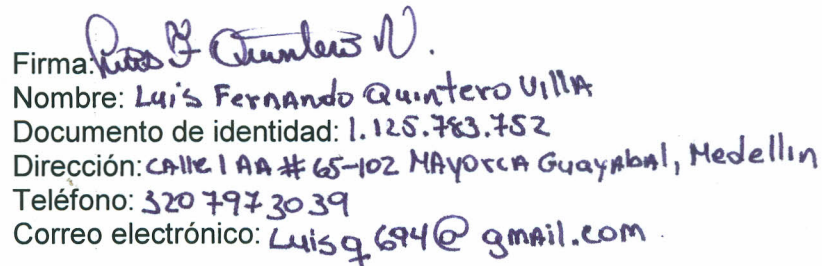 Firma: Luis F Quintero V.
Nombre: Luis Fernando Quintero Villa
Documento de identidad: 1.125.783.752
Dirección: CAlle 1 AA # 65-102 MAyorcA GuayAbAl, Medellin
Teléfono: 320 797 30 39
Correo electrónico: Luisq694@gmail.com